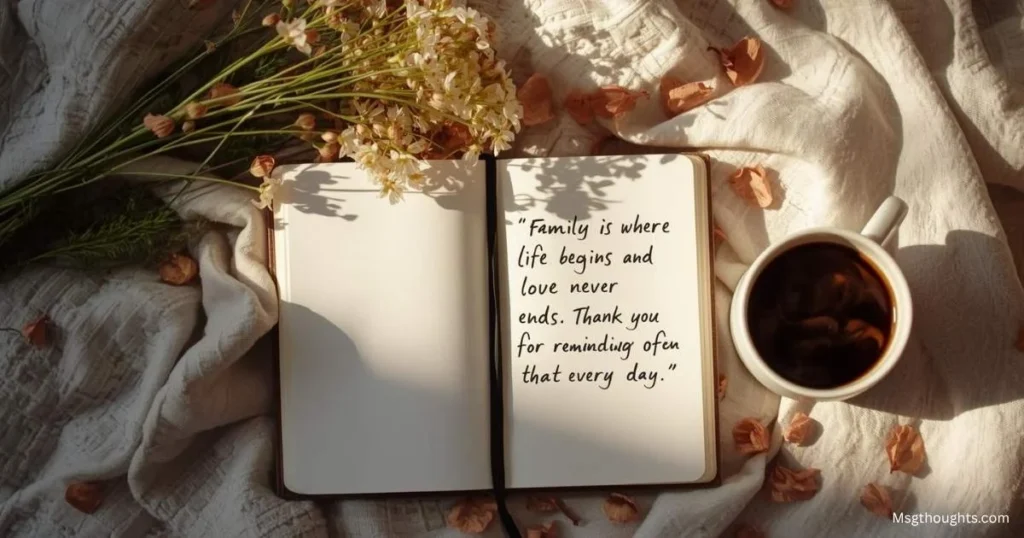 "Family is where
life begins and
love never
ends. Thank you
for reminding ofen
that every day."
Msgthoughts.com